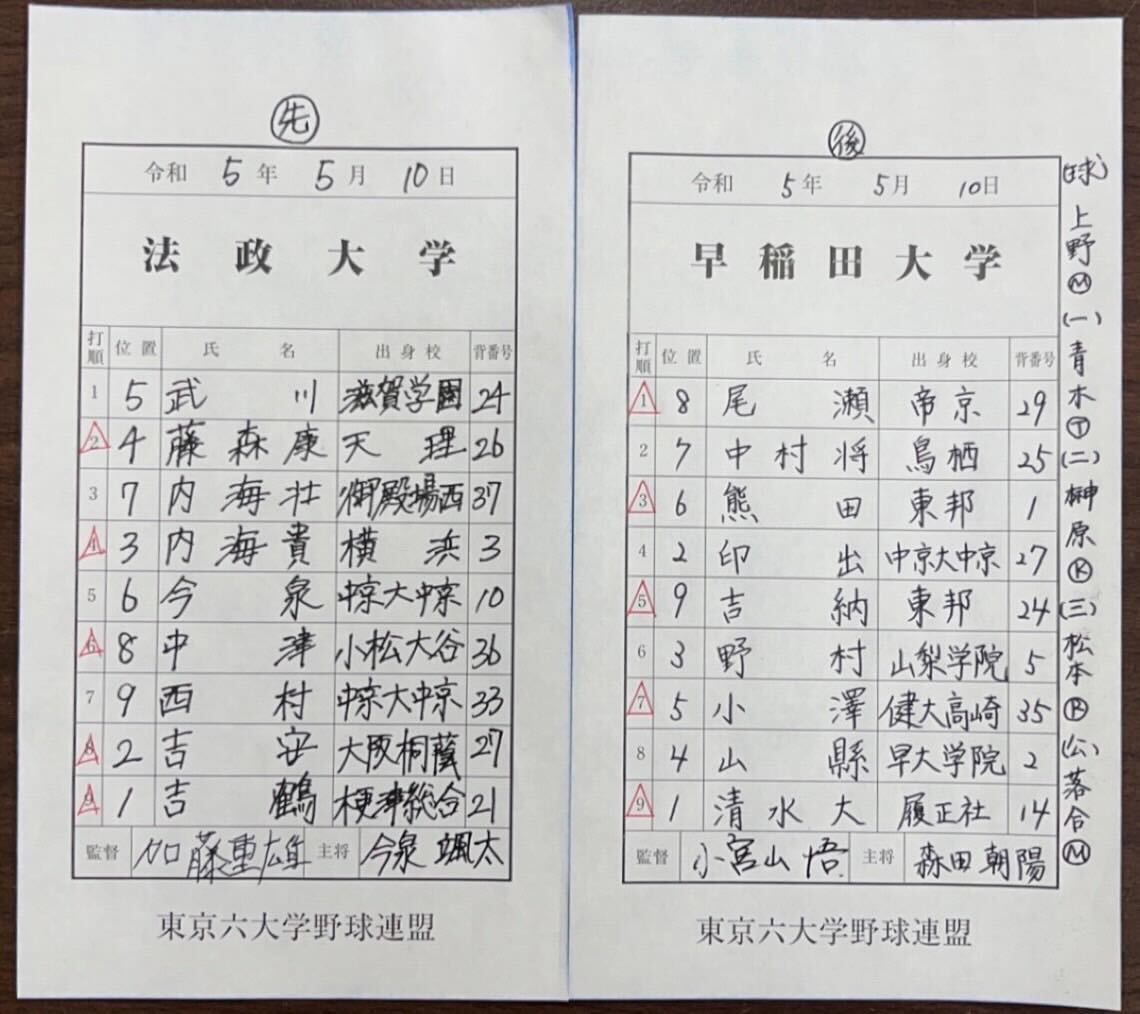 先
令和 5年 5月 10日
法政大学
打順 位置 氏名 出身校 背番号
1 5 武川 滋賀学園 24
2 4 藤森康 天理 26
3 7 内海壮 御殿場西 37
4 3 内海貴 横浜 3
5 6 今泉 中京大中京 10
6 8 中津 小松大谷 36
7 9 西村 中京大中京 33
8 2 吉安 大阪桐蔭 27
9 1 吉鶴 木更津総合 21
監督 加藤重雄 主将 今泉颯太
東京六大学野球連盟
後
令和 5年 5月 10日
早稲田大学
打順 位置 氏名 出身校 背番号
1 8 尾瀬 帝京 29
2 7 中村将 鳥栖 25
3 6 熊田 東邦 1
4 2 印出 中京大中京 27
5 9 吉納 東邦 24
6 3 野村 山梨学院 5
7 5 小澤 健大高崎 35
8 4 山縣 早大学院 2
9 1 清水大 履正社 14
監督 小宮山悟 主将 森田朝陽
東京六大学野球連盟
(球)上野Ⓜ(一)青木Ⓣ(二)榊原Ⓚ(三)松本Ⓡ(公)落合Ⓜ